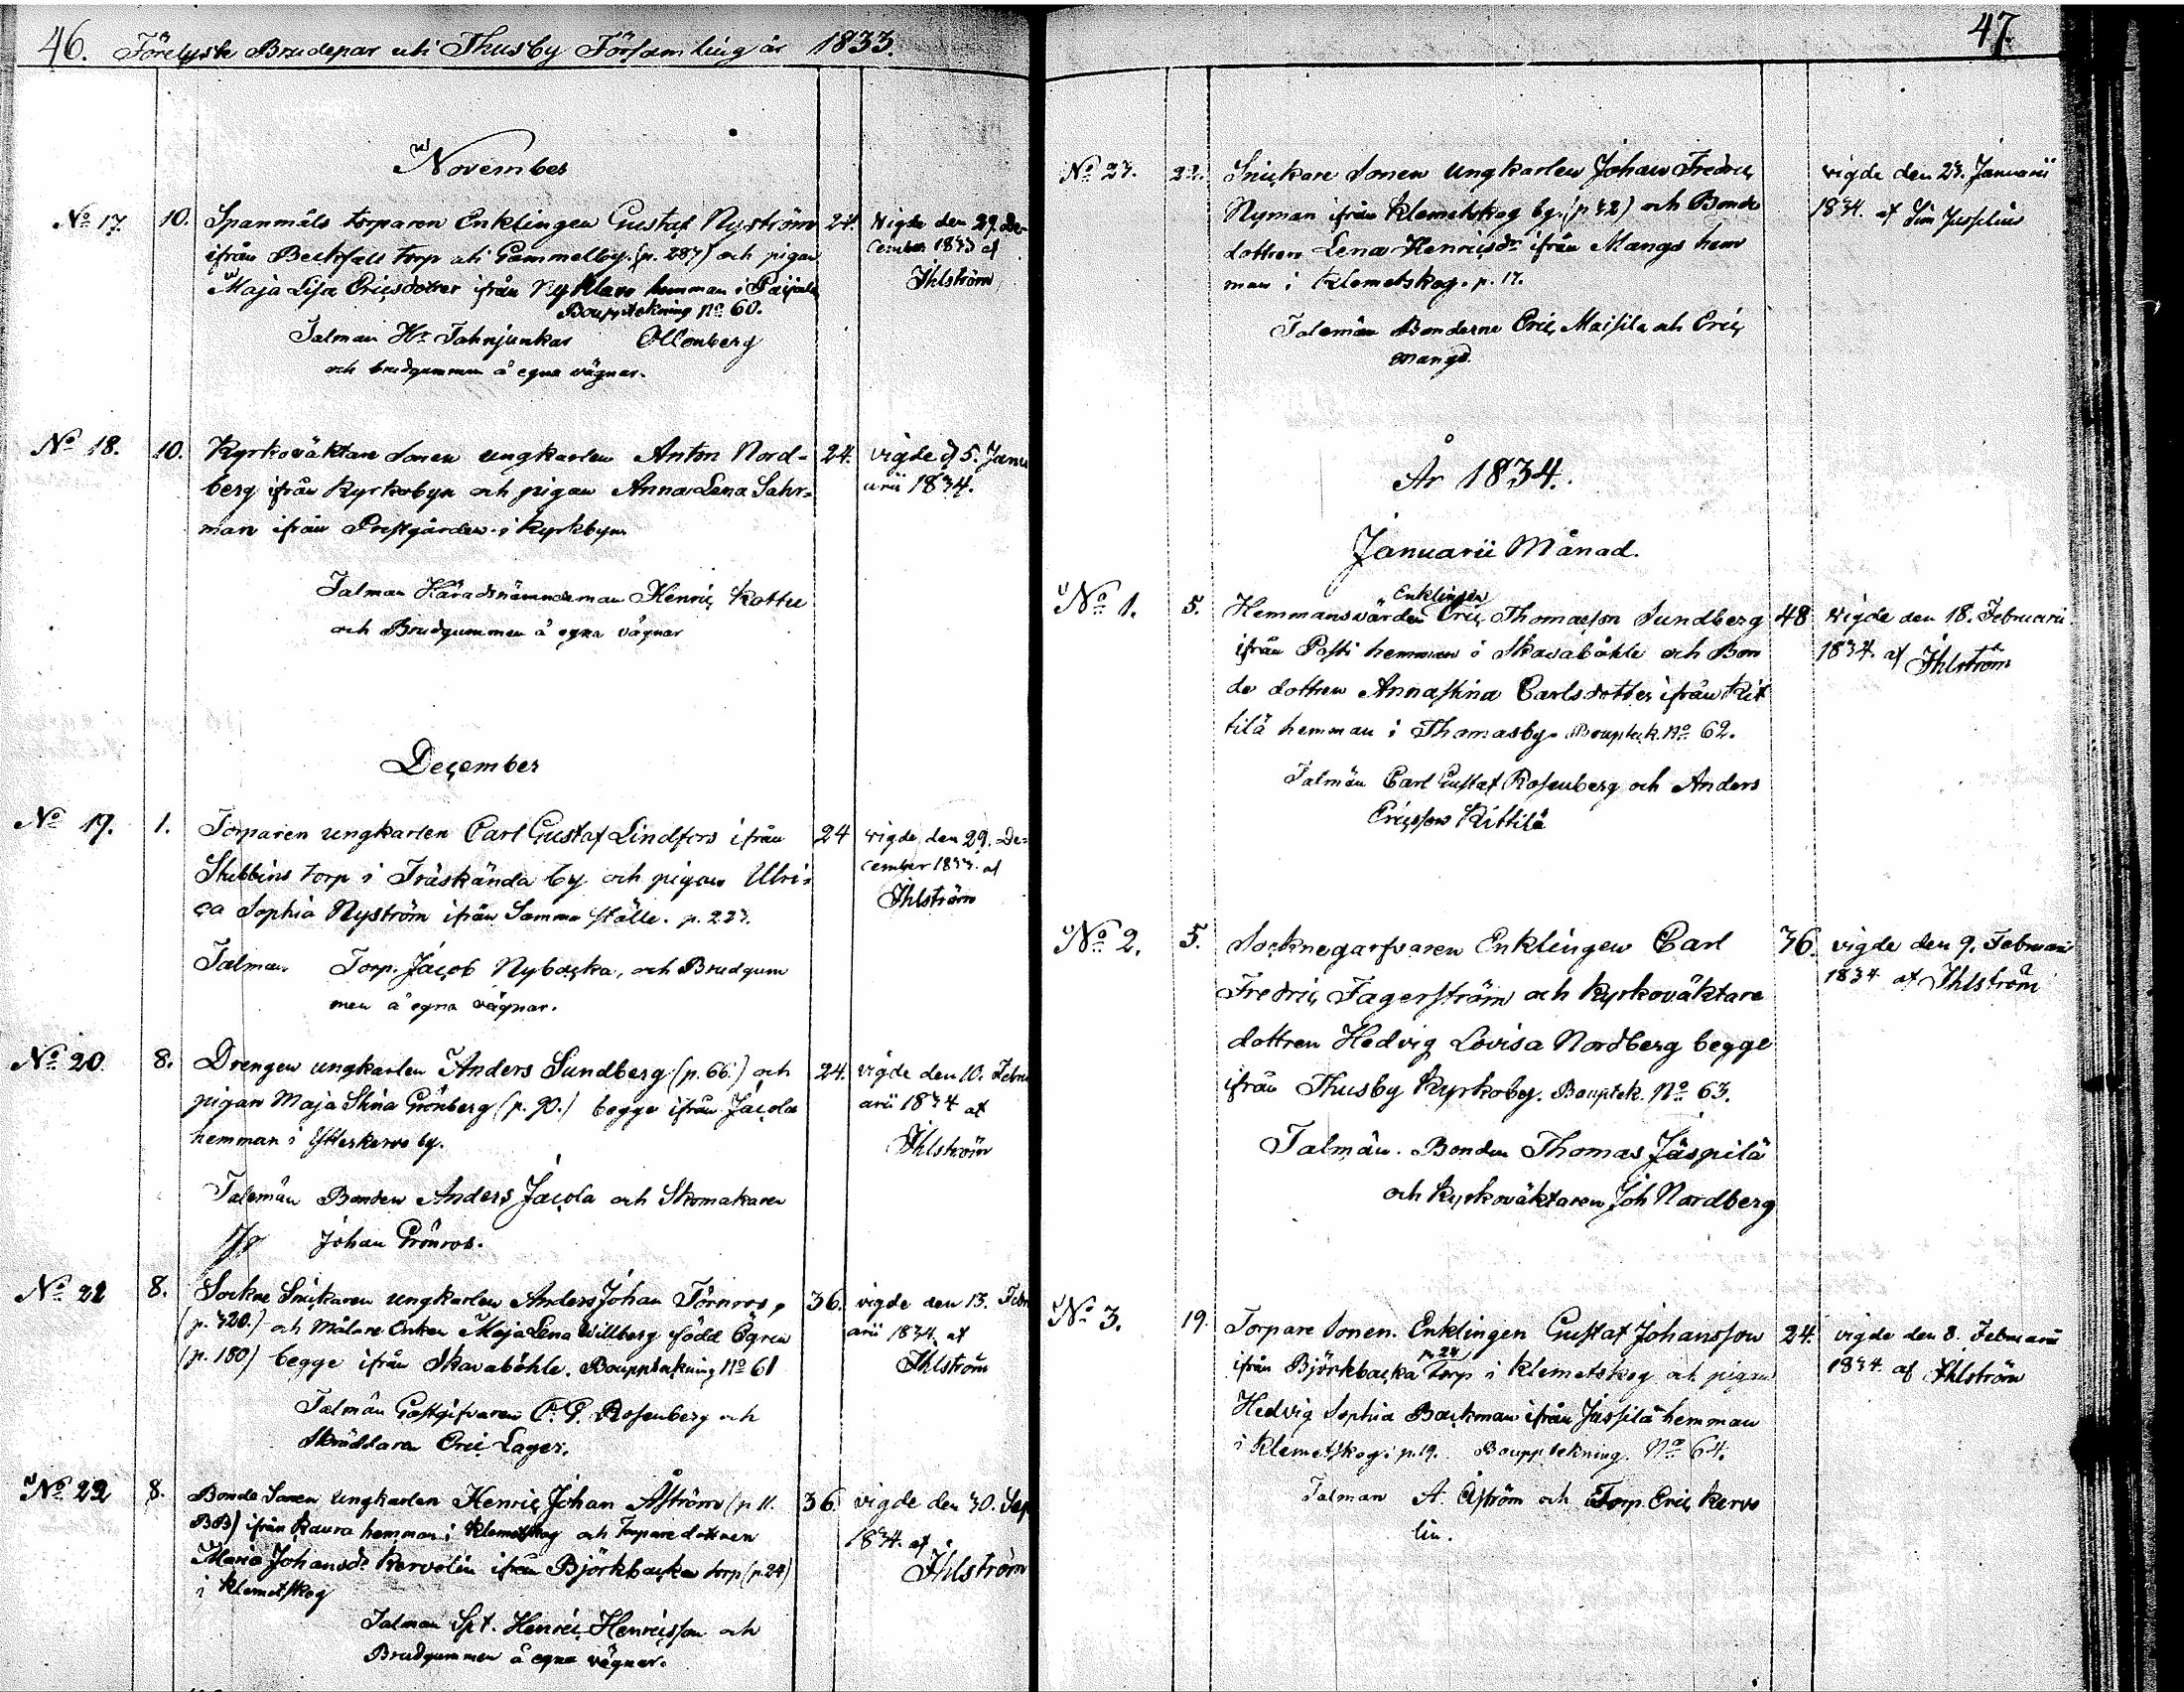 46. Förelyste Brudepar uti Thusby Församling år 1833.
November
No 17. 10. Spanmåls torparen Enklingen Gustaf Nyström 24. Vigde den 29. De-
ifrån torp uti Gammelby. (p. 287) och pigan cember 1833 af
Maja Lisa Ericsdotter ifrån Ny Klavo hemman i Paijala Ihlström
Bouppteckning No 60.
Talman Hr Fahnjunkar Ollonberg
och brudgummen å egna vägnar.
No 18. 10. Kyrkoväktare Sonen ungkarlen Anton Nord- 24. vigde d 5. Janu
berg ifrån Kyrkobyn och pigan Anna Lena Sahr- arii 1834.
man ifrån Prestgården i Kyrkbyn
Talman Häradsnämndeman Henric Kottu
och Brudgummen å egna vägnar
December
No 19. 1. Torparen ungkarlen Carl Gustaf Lindfors ifrån 24 vigde den 29. De-
Stubbins torp i Träskända by och pigan Ulri- cember 1833. af
ca Sophia Nyström ifrån Samma ställe. p. 223. Ihlström
Talman Torp. Jacob Nybacka, och Brudgum
men å egna vägnar.
No 20. 8. Drengen ungkarlen Anders Sundberg (p. 66.) och 24. vigde den 10. Febru
pigan Maja Stina Grönberg (p. 90.) begge ifrån Jacola arii 1834 af
hemman i Ytterkervo by. Ihlström
Talemän Bonden Anders Jacola och Skomakaren
Johan Grönros.
No 21 8. Sockne Snickaren ungkarlen Anders Johan Törnros, 36. vigde den 13. Febr
(p. 320.) och Målare Enkan Maja Lena Willberg född Ögren arii 1834. af
(p. 180) begge ifrån Skavaböhle. Bouppteckning No 61 Ihlström
Talmän Gästgifvaren C. G. Rosenberg och
Skräddaren Eric Lager.
No 22 8. Bonde Sonen ungkarlen Henric Johan Åström (p 11. 36 vigde den 30. Sep
BB) ifrån Kaura hemman i Klemetskog och Torpare dottren 1834. af
Maria Johansdr Kervolin ifrån Björkbacka torp (p. 24) Ihlström
i Klemetskog
Talman Spt. Henric Henricsson och
Brudgummen å egna vägnar.
47.
No 23. 22. Snickare Sonen ungkarlen Johan Fredric vigde den 23. Januarii
Nyman ifrån Klemetskog by. (p 32) och Bonde 1834. af
dottren Lena Henricsdr ifrån Mangs hem
man i Klemetskog. p. 17.
Talemän Bonderne Eric Maisila och Eric
Mangs.
År 1834.
Januarii Månad.
Enklingen
No 1. 5. Hemmansvärden Eric Thomasson Sundberg 48 vigde den 18. Februarii
ifrån Posti hemman i Skavaböhle och Bon 1834. af Ihlström
de dottren Annastina Carlsdotter ifrån Kit
tilä hemman i Thomasby. Bouptek. No 62.
Talmän Carl Gustaf Rosenberg och Anders
Ericsson Kittilä
No 2. 5. Socknegarfvaren Enklingen Carl 36. vigde den 9. Februarii
Fredric Fagerström och Kyrkoväktare 1834 af Ihlström
dottren Hedvig Lovisa Nordberg begge
ifrån Thusby Kyrkoby. Bouptek. No 63.
Talmän. Bonden Thomas Jäspilä
och Kyrkoväktaren Joh Nordberg
No 3. 19. Torpare Sonen. Enklingen Gustaf Johansson 24. vigde den 8. Februarii
p. 24
ifrån Björkbacka Torp i Klemetskog och pigan 1834. af Ihlström
Hedvig Sophia Backman ifrån Jussila hemman
i Klemetskog. p. 19. Bouppteckning. No 64.
Talman A. Åström och Torp. Eric Kervo
lin.